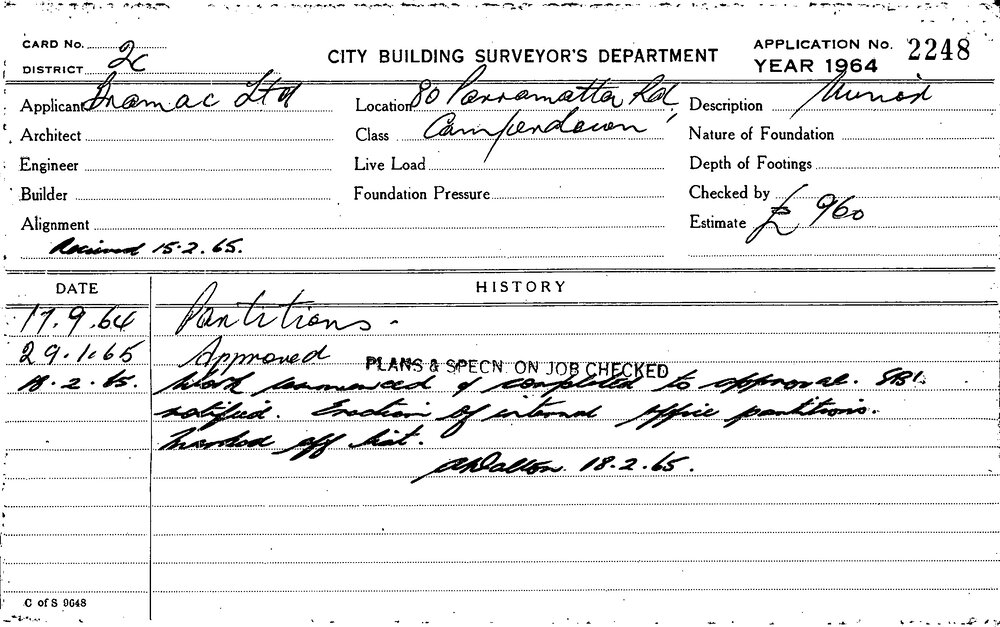 CARD No.
DISTRICT 2c
CITY BUILDING SURVEYOR'S DEPARTMENT
APPLICATION No. 2248
YEAR 1964
Applicant Bramac Ltd
Location 80 Parramatta Rd,
Description Minor
Architect
Class Camperdown
Nature of Foundation
Engineer
Live Load
Depth of Footings
Builder
Foundation Pressure
Checked by
Alignment
Estimate £ 960
Received 15.2.65.
DATE
HISTORY
17.9.64 Partitions.
29.1.65 Approved
PLANS & SPECN. ON JOB CHECKED
18.2.65. Work commenced & completed to approval. SBI
notified. Erection of internal office partitions.
Marked off list.
Dalton. 18.2.65.
C of S 9648